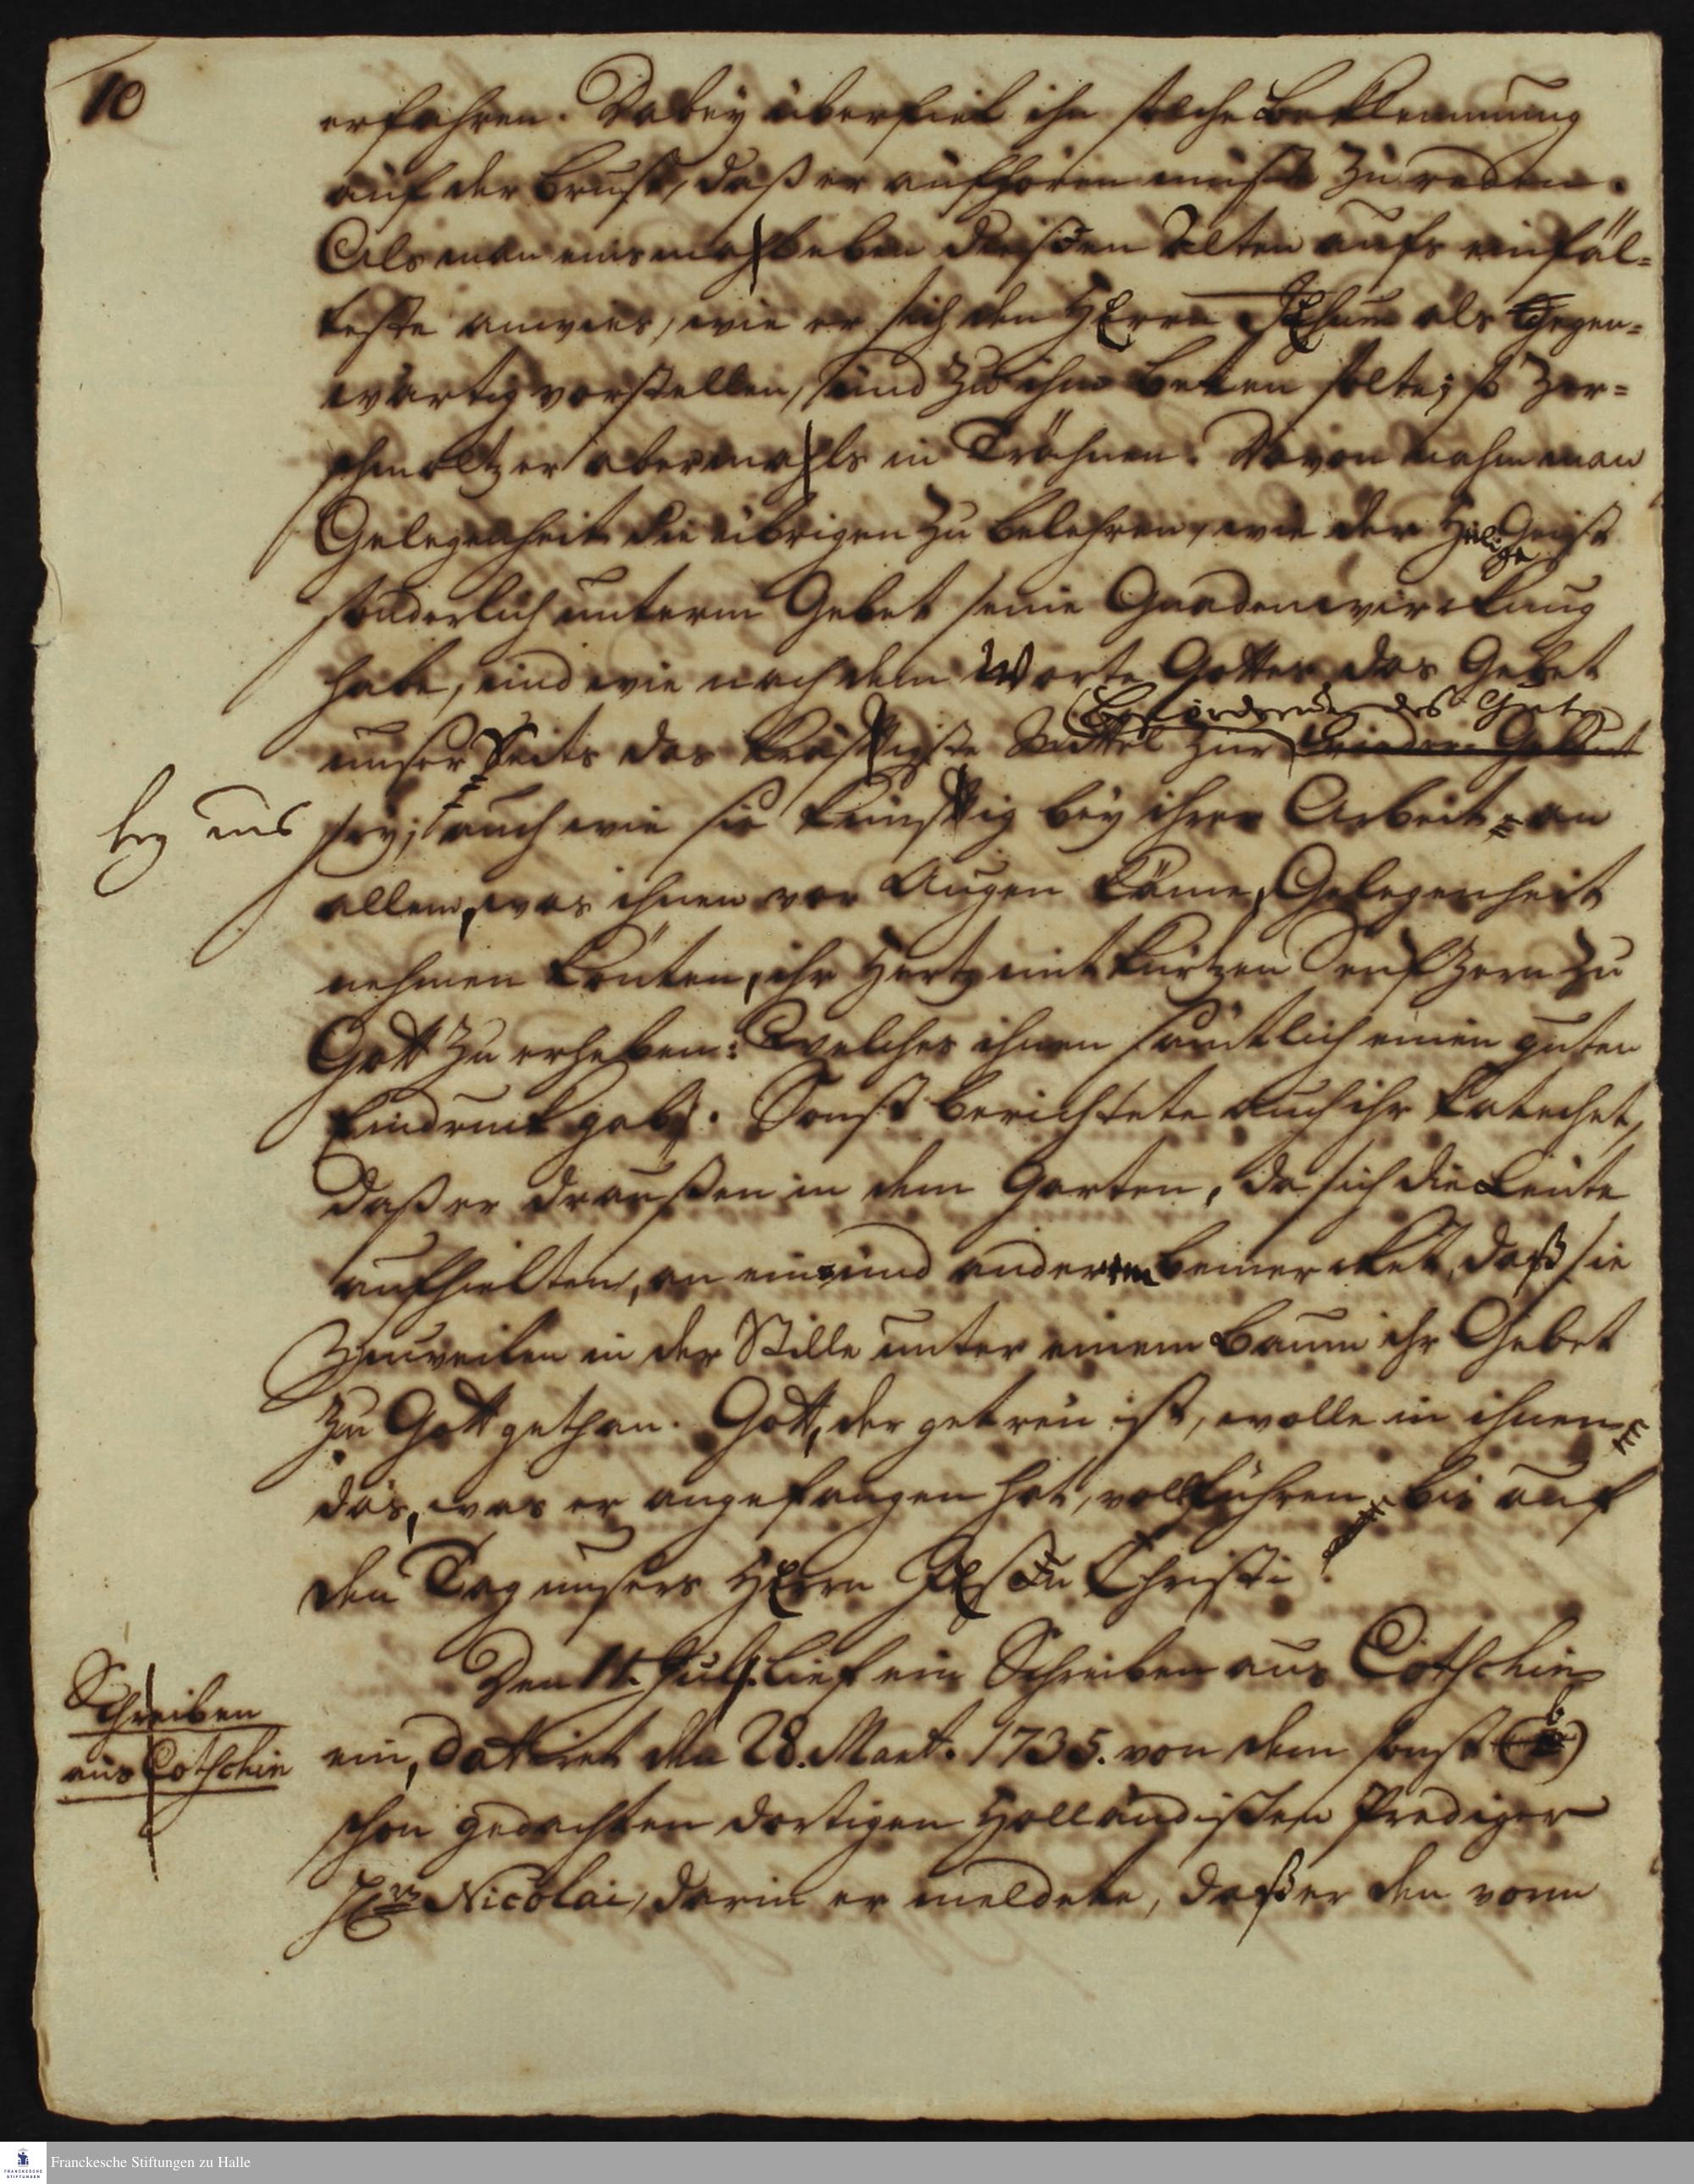 10
erfahren. Dabey überfiel ihn solche Beklemmung
auf der Brust, daß er aufhören muste zu reden.
Als man einsmahl eben diesen Alten aufs einfäl-
teste anwies, wie er sich den HErrn JEsum als gegen-
wärtig vorstellen, und zu ihm beten solte; so zer-
schmoltz er abermahls in Thränen. Davon nahm man
Gelegenheit die übrigen zu belehren, wie der Heilige Geist
sonderlich unterm Gebet seine Gnadenwirckung
habe, und wie nach dem Worte Gottes das Gebet
Beförderung des Guten
unser Seits das kräftigste Mittel zur Wieder-Geburt
bey uns
sey; auch wie sie künftig bey ihrer Arbeit an
allem, was ihnen vor Augen käme, Gelegenheit
nehmen könten, ihr Hertz mit kurtzen Seufzern zu
Gott zu erheben: Welches ihnen sämtlich einen guten
Eindruck gab. Sonst berichtete auch ihr Catechet,
daß er draußen in dem Garten, da sich die Leute
aufhielten, an ein und andern bemercket, daß sie
zuweilen in der Stille unter einem Baum ihr Gebet
zu Gott gethan. Gott, der getreu ist, wolle in ihnen
das, was er angefangen hat, vollführen bis auf
den Tag unsers HErrn JEsu Christi.
Den 11. Jul. lief ein Schreiben aus Cotschin
Schreiben
aus Cotschin
ein, datiret den 28. Mart. 1735. von dem sonst (b)
schon gedachten dortigen Holländischen Prediger
Hrn Nicolai, darin er meldete, daß er den vorm
Franckesche Stiftungen zu Halle